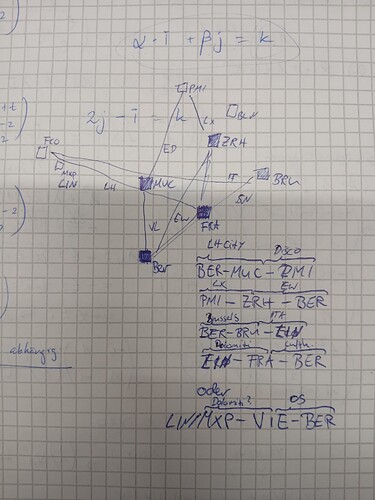 α · i + βj = k
2j - i = k
PMI
BLN
LX
ZRH
FCO
MXP
LIN
ED
MUC
IT
BRU
LH
SN
EW
FRA
VL
Ber
abhängig
LH CITY Disco
BER-MUC-PMI
LX EW
PMI-ZRH-BER
Brussels ITA
BER-BRU-LIN
Dolomiti Lufth.
LIN-FRA-BER
oder
Dolomiti? OS
LIN/MXP-VIE-BER